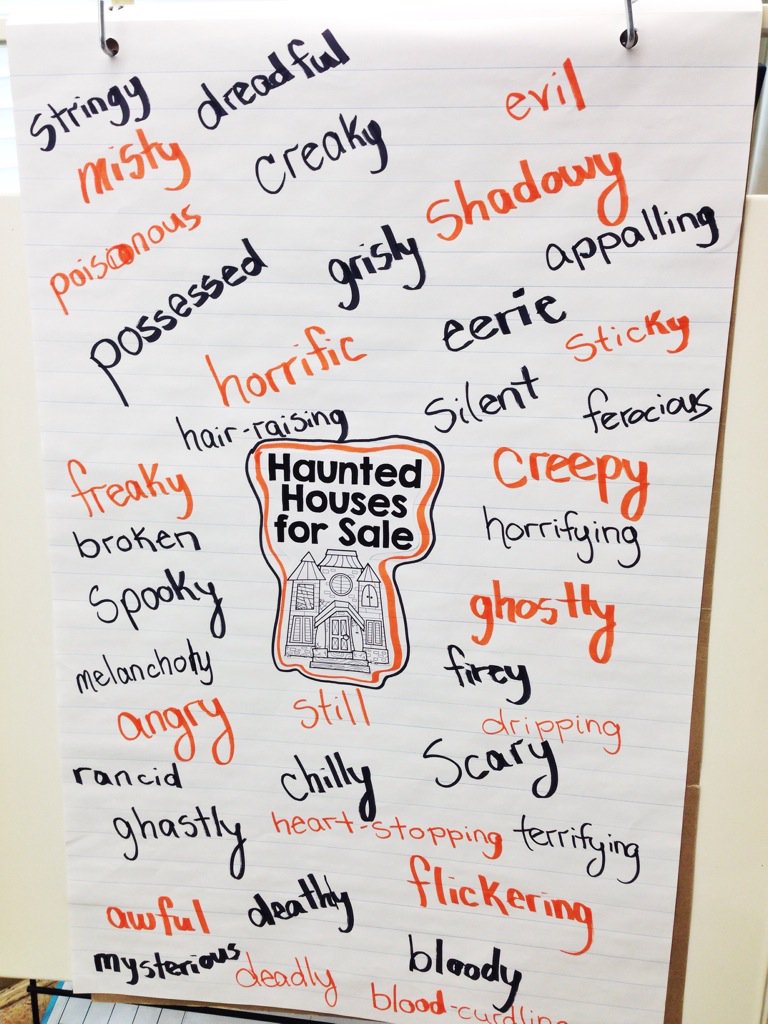 stringy
dreadful
evil
misty
creaky
shadowy
poisonous
possessed
grisly
appalling
eerie
horrific
sticky
hair-raising
silent
ferocious
Haunted
Houses
for Sale
freaky
creepy
broken
horrifying
spooky
ghostly
melancholy
firey
angry
still
dripping
rancid
chilly
scary
ghastly
heart-stopping
terrifying
flickering
awful
deathly
mysterious
deadly
bloody
blood-curdling